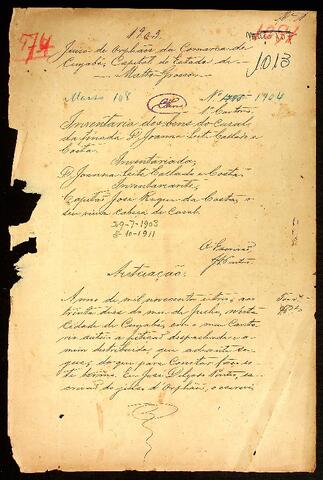 1903
774
Nº 1
1013
Juizo de Orphãos da Comarca de
Cuyabá, Capital do Estado de
Matto-Grosso
Masso 108
Nº 1904
1º Cartorio
Inventario dos bens do Casal
da finada D. Joanna Leite Callado e
Costa.
Inventariada,
D. Joanna Leite Callado e Costa
Inventariante,
Capitão José Roque da Costa, o
seu viuvo cabeça de Casal.
29-7-1903
3-10-1911
O Escrivão
Actuação:
Anno de mil novecentos e tres, aos
trinta dias do mez de Julho, nesta
Cidade de Cuyabá, em o meu Carto
rio autúo a petição despachada e a
mim distribuida, que adiante se
segue; do que para constar faço es
te termo. Eu José Delgado Pinto, es
crivão do juizo d'Orphãos, o escrevi